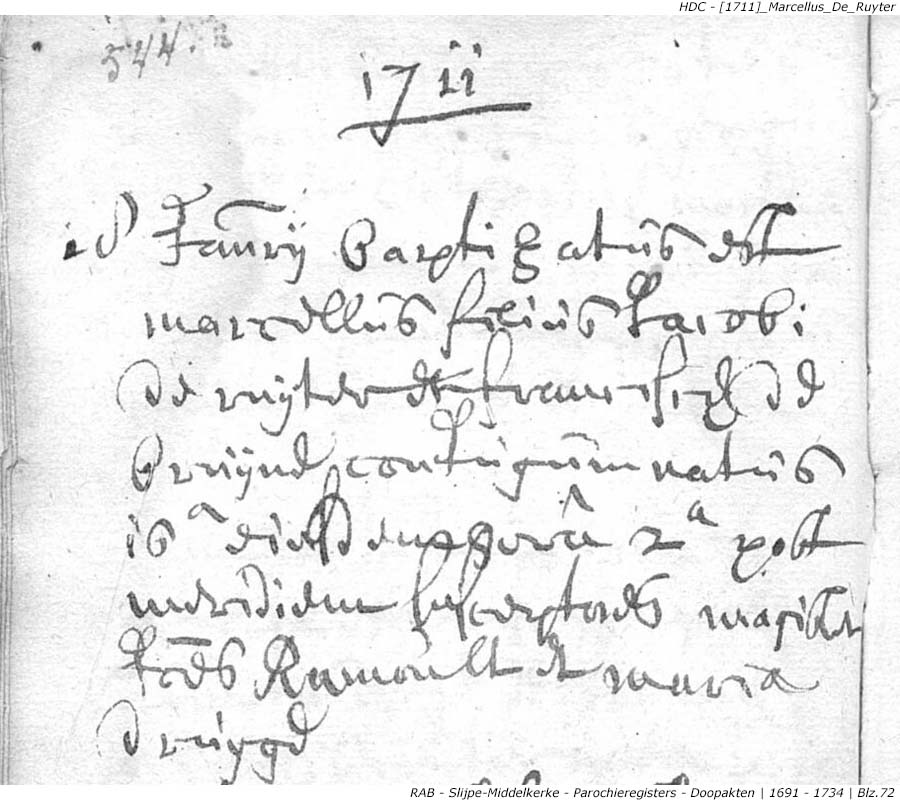 HDC - [1711]_Marcellus_De_Ruyter
544.
1711
Janury Baptizatus est
marcellus filius Jacobi
de ruyter et francisca de
Bruyne coniugum natus
eiusdem hora 2a post
meridiem susceptores
Ramoult et maria
RAB - Slijpe-Middelkerke - Parochieregisters - Doopakten | 1691 - 1734 | Blz.72